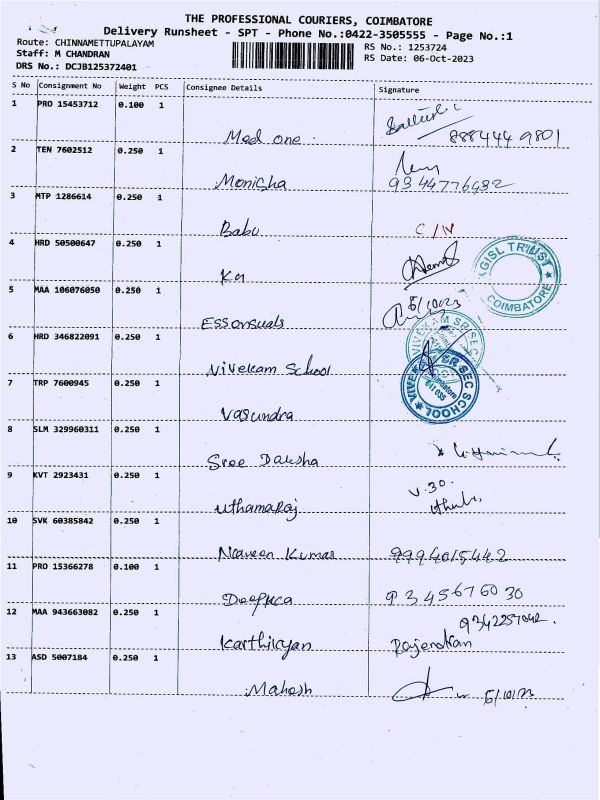 THE PROFESSIONAL COURIERS, COIMBATORE
Delivery Runsheet - SPT - Phone No.:0422-3505555 - Page No.:1
Route: CHINNAMETTUPALAYAM
RS No.: 1253724
Staff: M CHANDRAN
RS Date: 06-Oct-2023
DRS No.: DCJB125372401
S No Consignment No Weight PCS Consignee Details Signature
1 PRO 15453712 0.100 1
Med one 8884449801
2 TEN 7602512 0.250 1
Monisha 9344776932
3 MTP 1286614 0.250 1
Babu C/N
4 HRD 50500647 0.250 1
AGISL TRUST
COIMBATORE
5 MAA 106076050 0.250 1
6/10/23
Essonsuals
6 HRD 346822091 0.250 1
VIVEKAM SR SEC
Vivekam School
7 TRP 7600945 0.250 1
VIVEKAM SR SEC SCHOOL
Coimbatore
641 035
Vasundra
8 SLM 329960311 0.250 1
Sree Daksha
9 KVT 2923431 0.250 1
V.30.
Uthamaraj
10 SVK 60385842 0.250 1
Naveen Kumar 9994015442
11 PRO 15366278 0.100 1
Deepika 9345676030
12 MAA 943663082 0.250 1
9342257042.
Karthikyan Rajendran
13 ASD 5007184 0.250 1
Mahesh 6/10/23